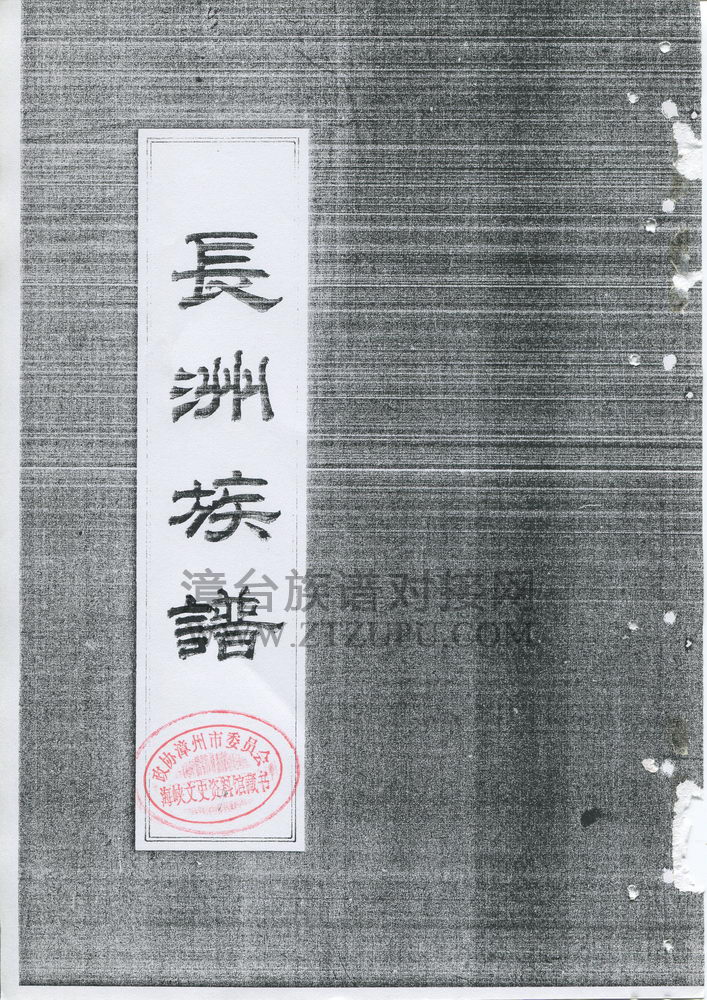 長洲族譜
漳台族谱对接网
WWW.ZTZUPU.COM
政协漳州市委员会
海峡文史资料馆藏书